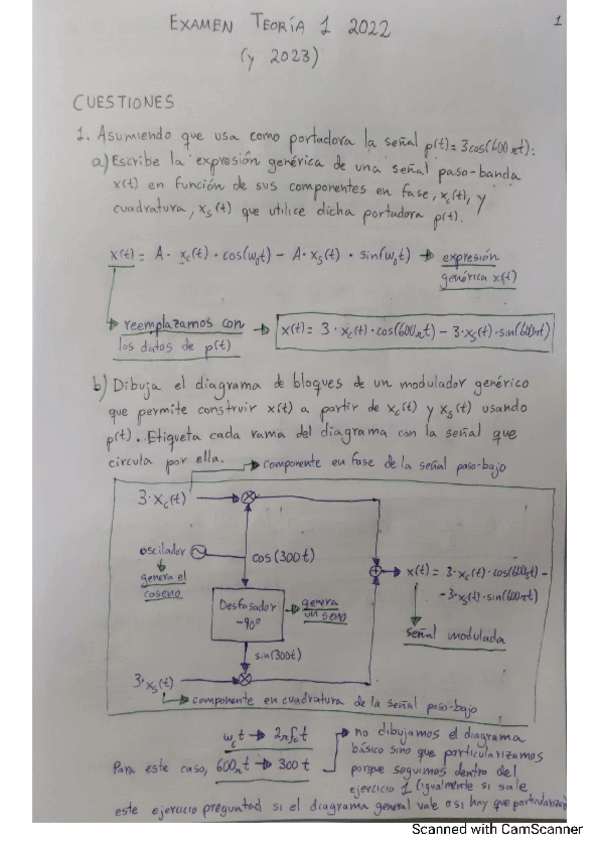 EXAMEN TEORÍA 1 2022
1
(y 2023)
CUESTIONES
1. Asumiendo que usa como portadora la señal p(t)=3cos(600πt):
a) Escribe la expresión genérica de una señal paso-banda
x(t) en función de sus componentes en fase, xc(t), y
cuadratura, xs(t) que utilice dicha portadora p(t).
x(t) = A · xc(t) · cos(ω0t) - A · xs(t) · sin(ω0t) → expresión
genérica x(t)
reemplazamos con → x(t) = 3 · xc(t) · cos(600πt) - 3 · xs(t) · sin(600πt)
los datos de p(t)
b) Dibuja el diagrama de bloques de un modulador genérico
que permite construir x(t) a partir de xc(t) y xs(t) usando
p(t). Etiqueta cada rama del diagrama con la señal que
circula por ella.
→ componente en fase de la señal paso-bajo
3 · xc(t)
oscilador
cos(300t)
genera el
coseno
x(t) = 3·xc(t)·cos(600πt) -
-3·xs(t)·sin(600πt)
Desfasador
-90º
genera
un seno
señal modulada
sin(300t)
3 · xs(t)
→ componente en cuadratura de la señal paso-bajo
ωct → 2πfct
Para este caso, 600πt → 300t
→ no dibujamos el diagrama
básico sino que particularizamos
porque seguimos dentro del
ejercicio 1 (igualmente si sale
este ejercicio preguntad si el diagrama general vale o si hay que particularizar)
Scanned with CamScanner